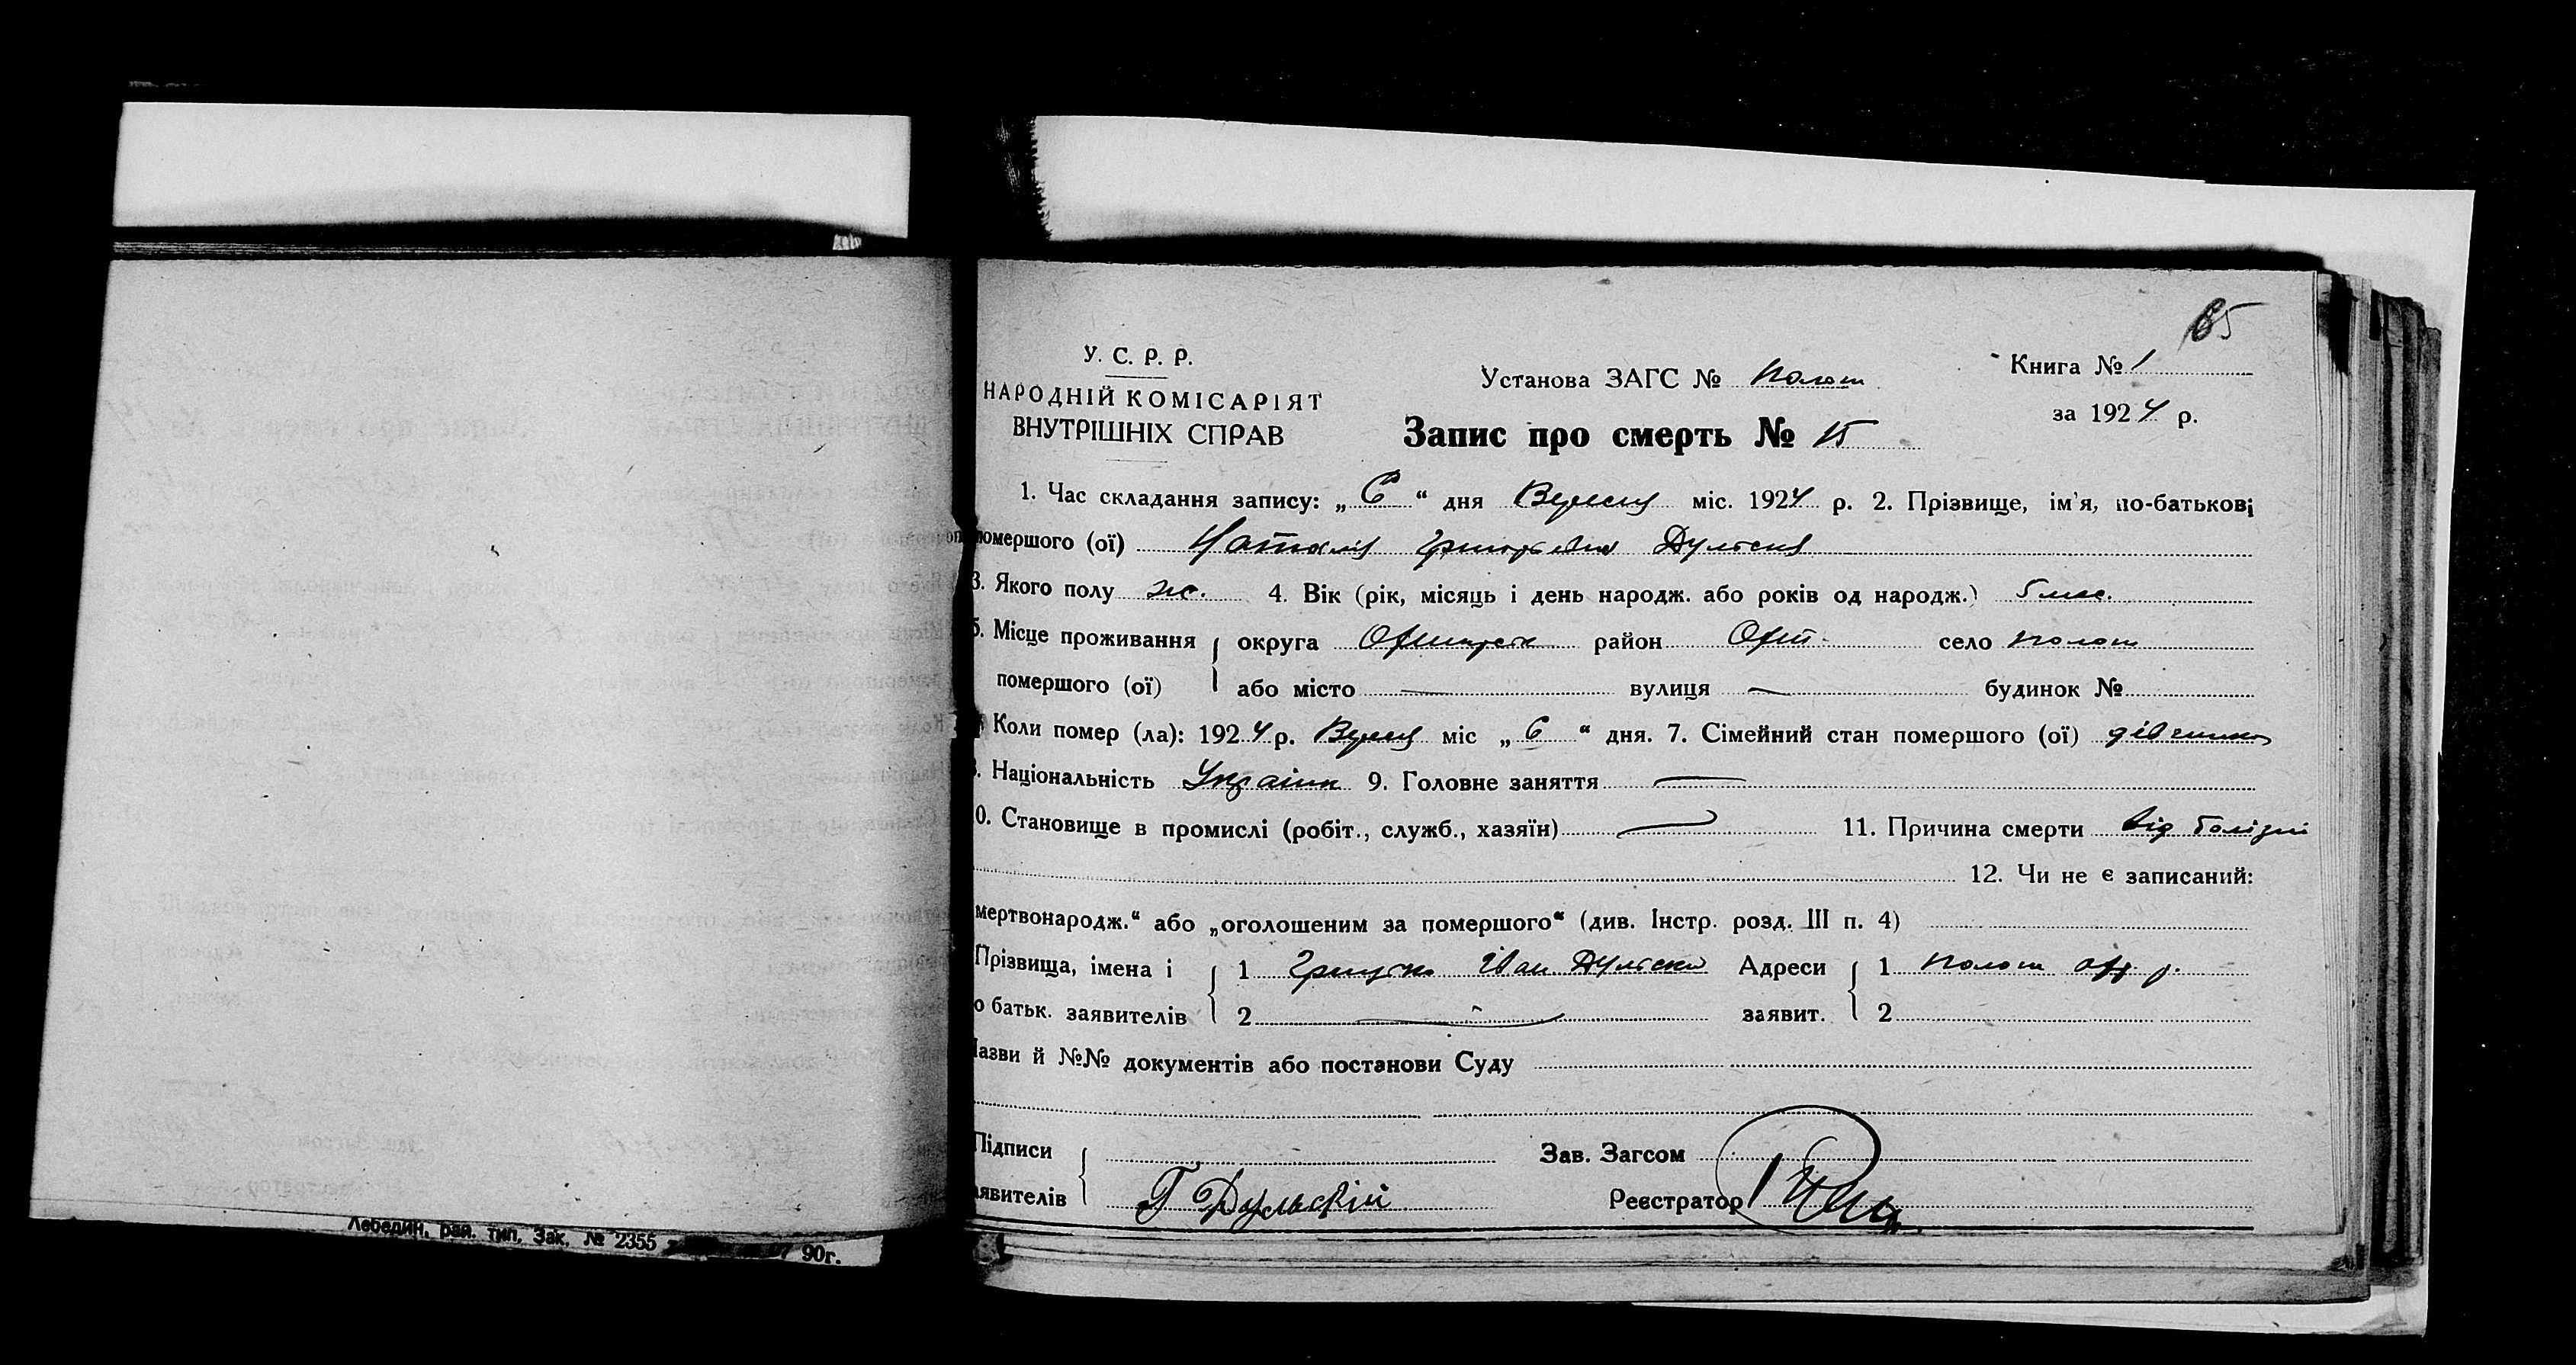 85
У. С. Р. Р.
НАРОДНІЙ КОМІСАРІЯТ
ВНУТРІШНІХ СПРАВ
Установа ЗАГС №
Книга № 1
за 1924 р.
Запис про смерть № 15
1. Час складання запису: „ 6 “ дня Вересня міс. 1924 р. 2. Прізвище, ім'я, по-батькові
помершого (ої) Наталія Григорьевна Дульская
3. Якого полу ж. 4. Вік (рік, місяць і день народж. або років од народж.) 5 мес.
5. Місце проживання округа район село
помершого (ої) або місто — вулиця — будинок №
Коли помер (ла): 1924 р. Вересня міс „ 6 “ дня. 7. Сімейний стан помершого (ої) дівчинка
8. Національність Україн 9. Головне заняття —
0. Становище в промислі (робіт., служб., хазяїн) — 11. Причина смерти від болізні
12. Чи не є записаний:
мертвонародж.“ або „оголошеним за помершого“ (див. Інстр. розд. III п. 4)
Прізвища, імена і 1 Іван Адреси 1
о батьк. заявителів 2 — заявит. 2
Назви й №№ документів або постанови Суду
Підписи Зав. Загсом
заявителів Г Дульскій Реєстратор
Лебедин, рай. тип. Зак. № 2355 90г.